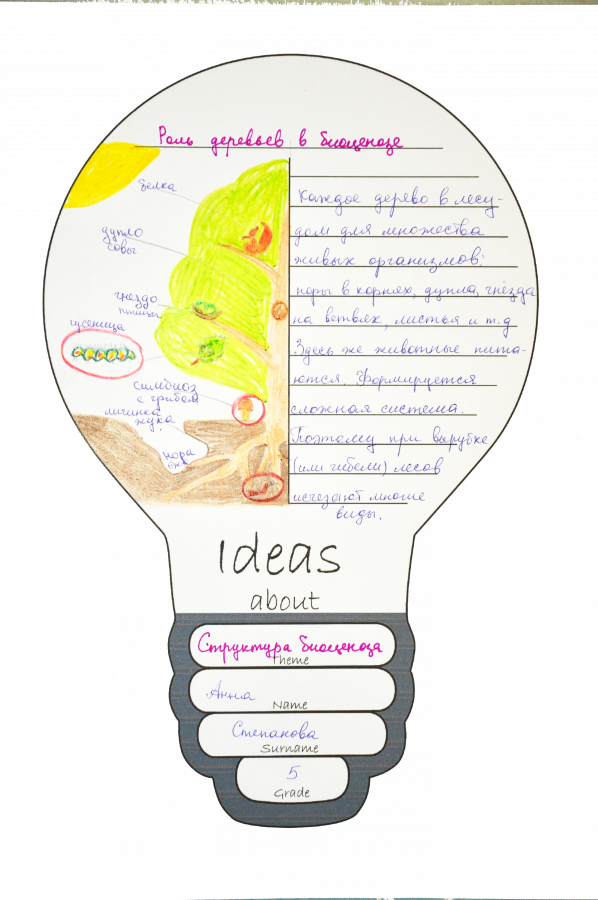 Роль деревьев в биоценозе
белка
дупло
совы
гнездо
птицы
гусеница
симбиоз
с грибом
личинка
жука
нора
Каждое дерево в лесу-
дом для множества
живых организмов:
норы в корнях, дупла, гнёзда
на ветвях, листья и т.д
Здесь же животные пита-
ются. Формируется
сложная система.
Поэтому при вырубке
(или гибели) лесов
исчезают многие
виды.
Ideas
about
Структура биоценоза
Theme
Анна
Name
Степанова
Surname
5
Grade